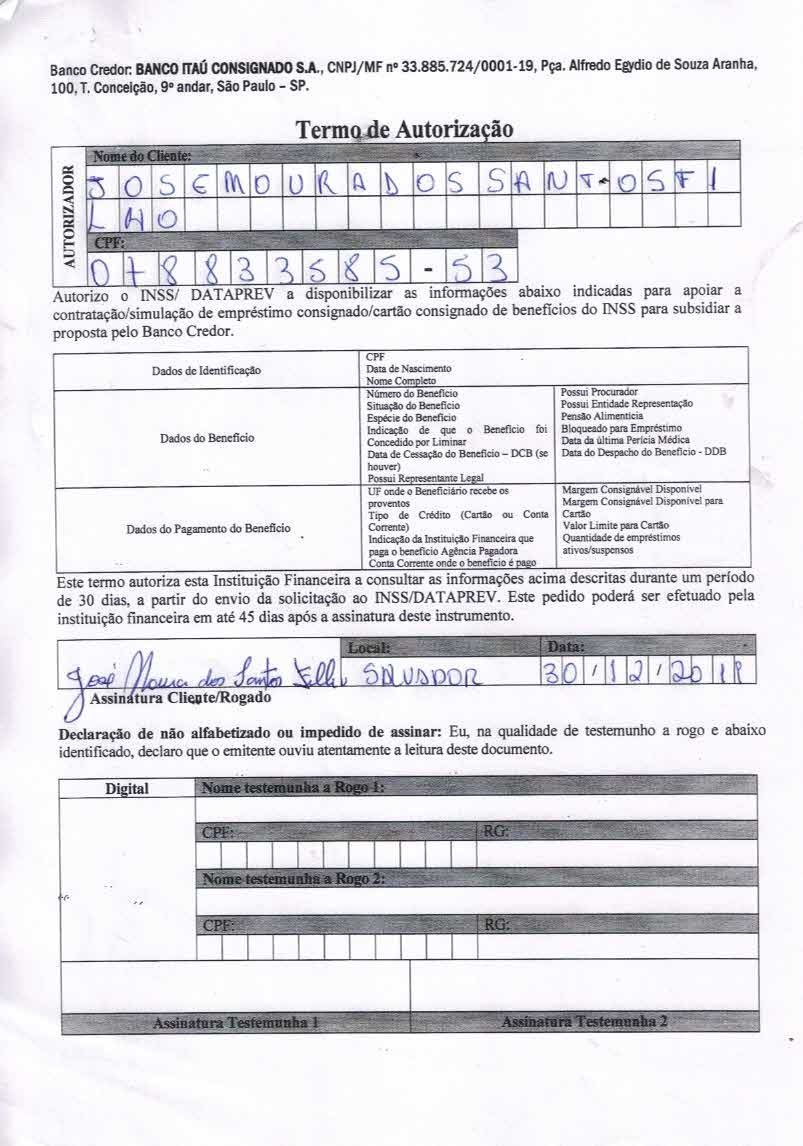 Banco Credor: BANCO ITAÚ CONSIGNADO S.A., CNPJ/MF nº 33.885.724/0001-19, Pça. Alfredo Egydio de Souza Aranha,
100, T. Conceição, 9º andar, São Paulo – SP.
Termo de Autorização
AUTORIZADOR
Nome do Cliente:
JOSE MOURA DOS SANTOS FI
LHO
CPF:
078833585-53
Autorizo o INSS/ DATAPREV a disponibilizar as informações abaixo indicadas para apoiar a
contratação/simulação de empréstimo consignado/cartão consignado de benefícios do INSS para subsidiar a
proposta pelo Banco Credor.
Dados de Identificação
CPF
Data de Nascimento
Nome Completo
Dados do Benefício
Número do Benefício
Situação do Benefício
Espécie do Benefício
Indicação de que o Benefício foi
Concedido por Liminar
Data de Cessação do Benefício – DCB (se
houver)
Possui Representante Legal
Possui Procurador
Possui Entidade Representação
Pensão Alimentícia
Bloqueado para Empréstimo
Data da última Perícia Médica
Data do Despacho do Benefício - DDB
Dados do Pagamento do Benefício
UF onde o Beneficiário recebe os
proventos
Tipo de Crédito (Cartão ou Conta
Corrente)
Indicação da Instituição Financeira que
paga o benefício Agência Pagadora
Conta Corrente onde o benefício é pago
Margem Consignável Disponível
Margem Consignável Disponível para
Cartão
Valor Limite para Cartão
Quantidade de empréstimos
ativos/suspensos
Este termo autoriza esta Instituição Financeira a consultar as informações acima descritas durante um período
de 30 dias, a partir do envio da solicitação ao INSS/DATAPREV. Este pedido poderá ser efetuado pela
instituição financeira em até 45 dias após a assinatura deste instrumento.
Local:
Data:
José Moura dos Santos Filho SALVADOR 30/12/20
Assinatura Cliente/Rogado
Declaração de não alfabetizado ou impedido de assinar: Eu, na qualidade de testemunho a rogo e abaixo
identificado, declaro que o emitente ouviu atentamente a leitura deste documento.
Digital
Nome testemunha a Rogo 1:
CPF:
RG:
Nome testemunha a Rogo 2:
CPF:
RG:
Assinatura Testemunha 1
Assinatura Testemunha 2